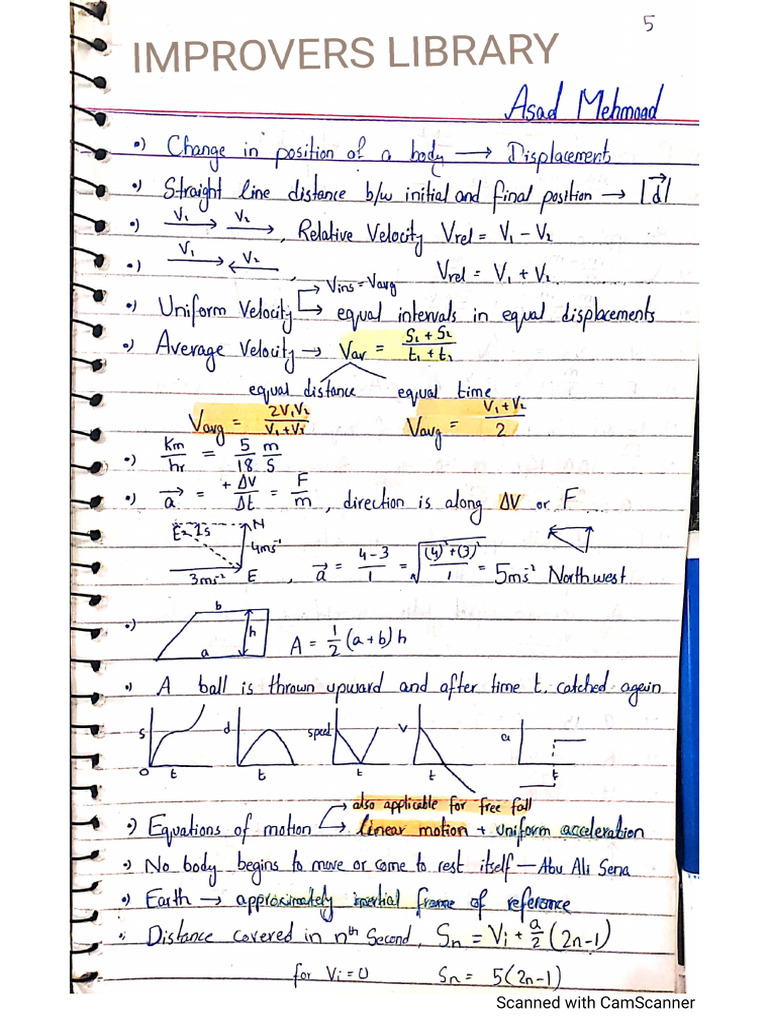 5
IMPROVERS LIBRARY
Asad Mehmood
•) Change in position of a body → Displacement
•) Straight line distance b/w initial and final position → |d⃗|
•) V₁ V₂ , Relative Velocity Vrel = V₁ - V₂
•) V₁ V₂ , Vrel = V₁ + V₂
Vins = Vavg
•) Uniform Velocity → equal intervals in equal displacements
•) Average Velocity → Vav = (S₁ + S₂)/(t₁ + t₂)
equal distance equal time
Vavg = 2V₁V₂/(V₁+V₂) Vavg = (V₁+V₂)/2
•) km/hr = 5/18 m/s
•) a⃗ = +ΔV/Δt = F/m , direction is along ΔV or F
t = 1s N
4ms⁻¹
3ms⁻² E , a⃗ = (4-3)/1 = √((4)²+(3)²)/1 = 5ms⁻² Northwest
•) b
a h A = 1/2 (a+b) h
•) A ball is thrown upward and after time t, catched again
S d speed V a
0 t t t t t
also applicable for free fall
•) Equations of motion → linear motion + uniform acceleration
•) No body begins to move or come to rest itself — Abu Ali Sena
•) Earth → approximately inertial frame of reference
•) Distance covered in nth Second, Sn = Vi + a/2 (2n-1)
for Vi = 0 Sn = 5(2n-1)
Scanned with CamScanner